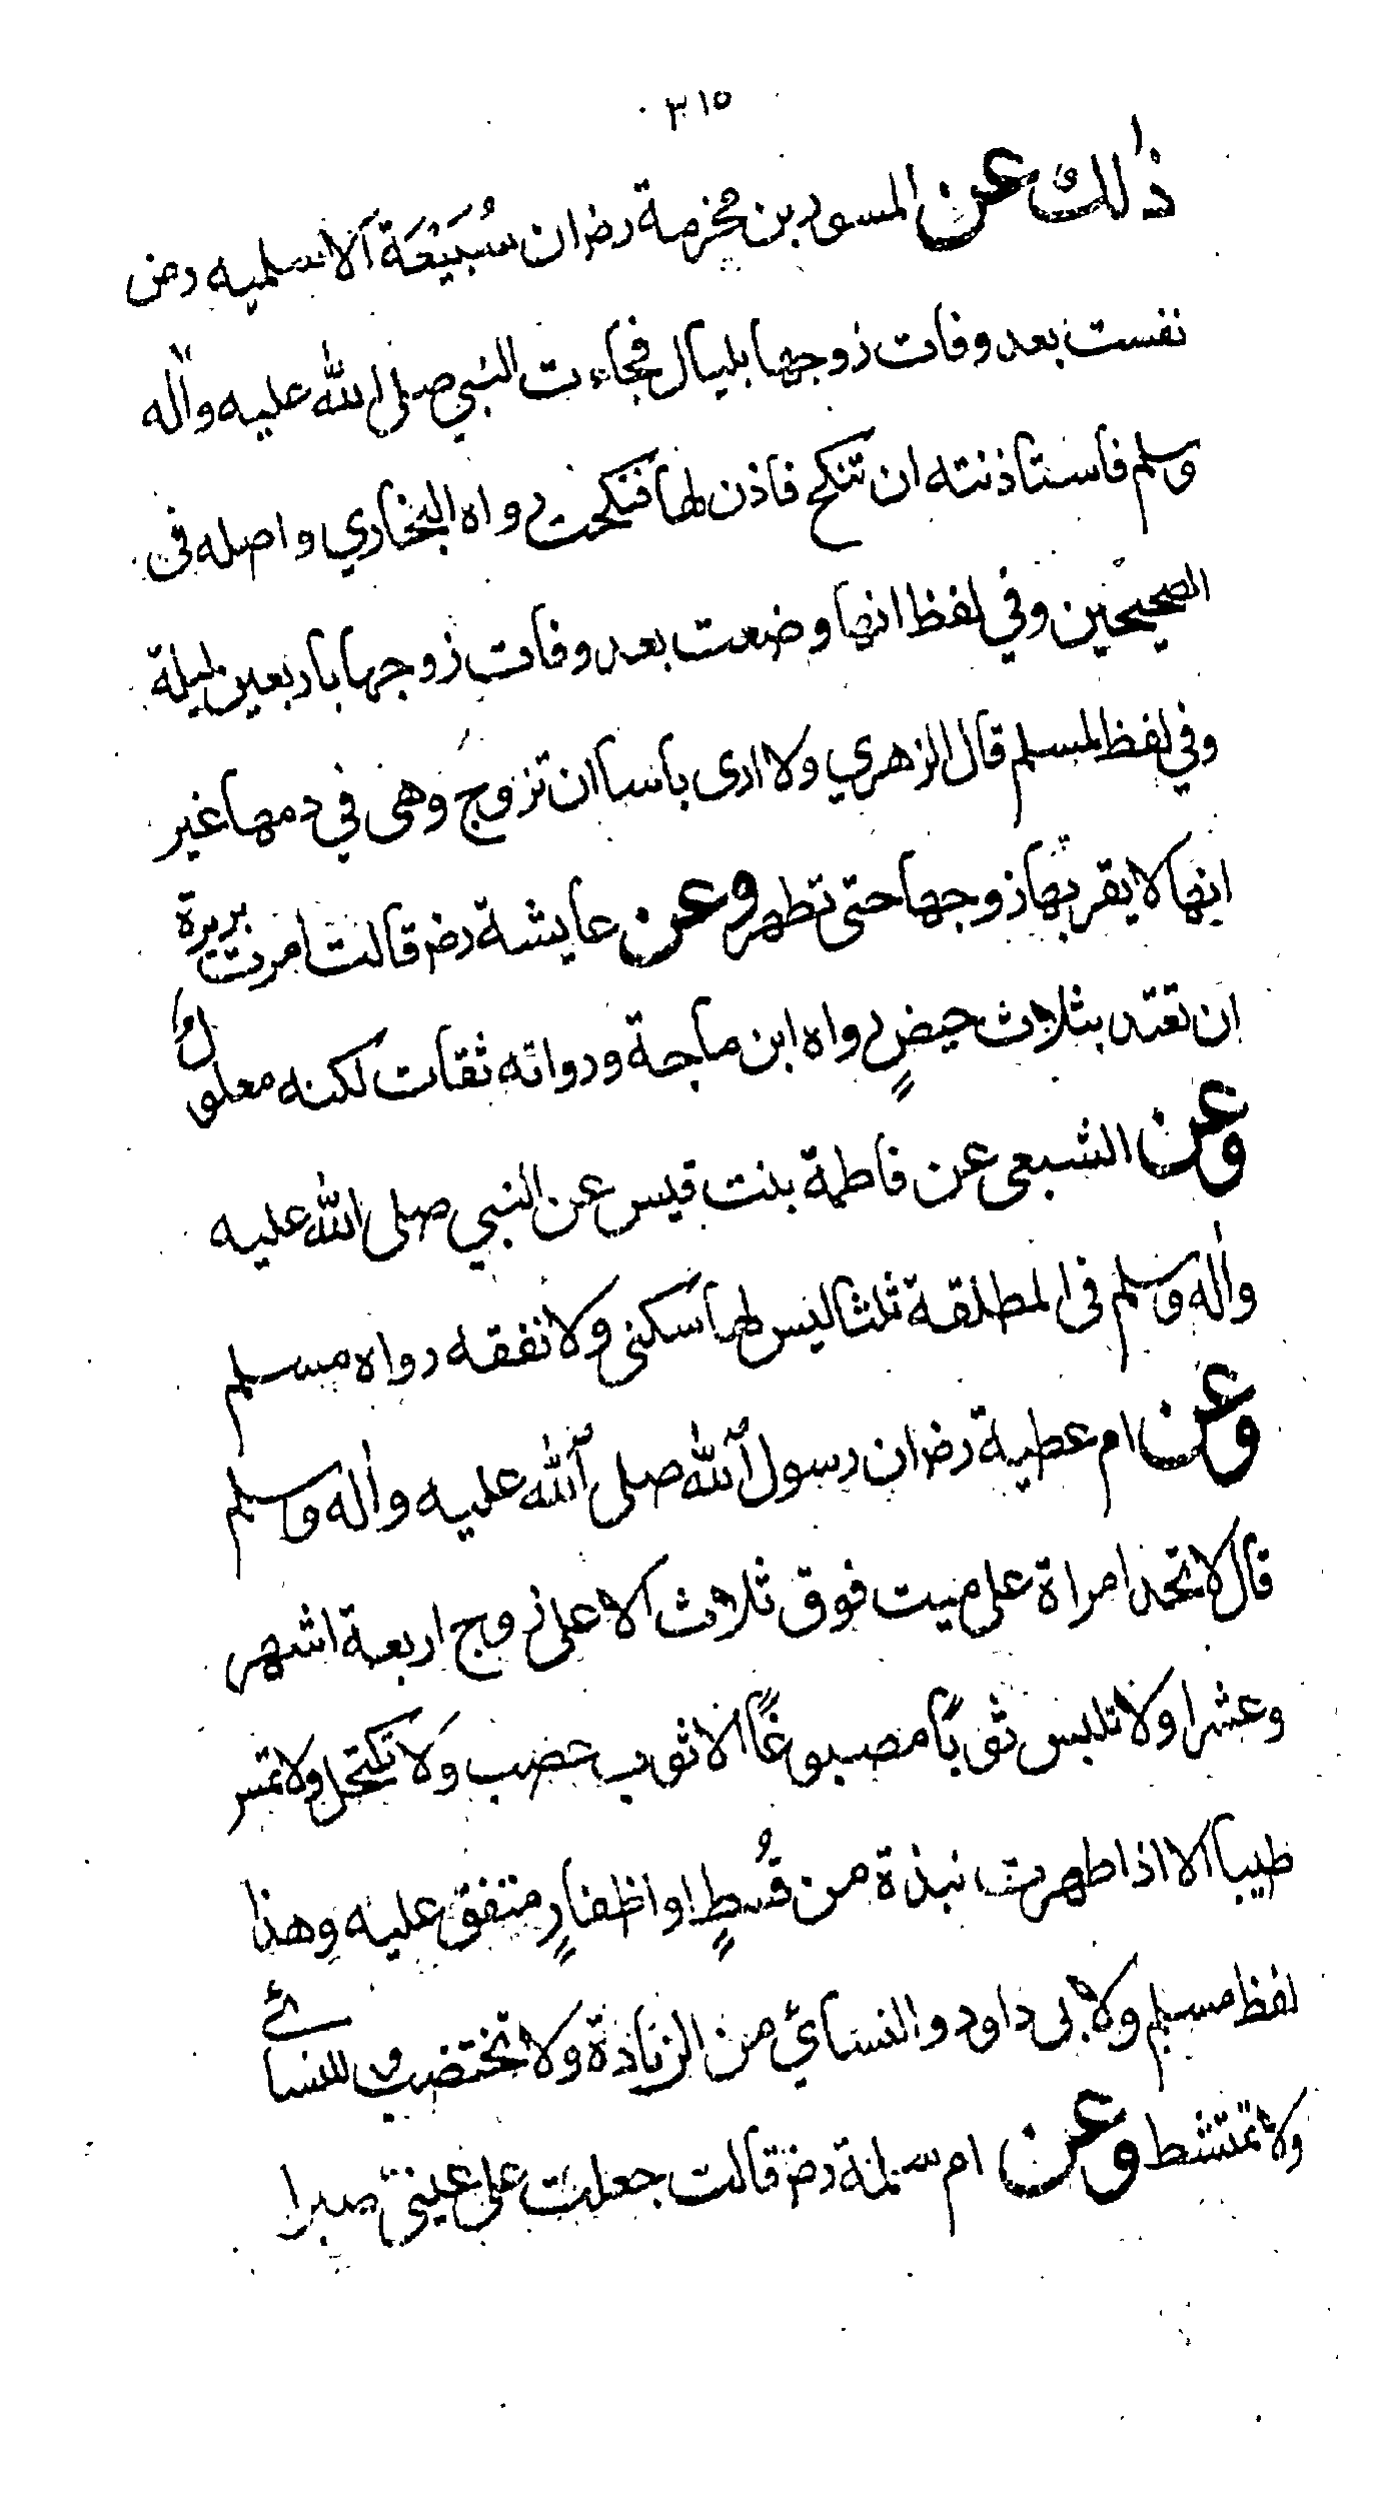 ٣١٥
ذٰلك عن المسور بن مخرمة رضـ ان سُبَيْعَة الاسلميه رضـ
نفست بعد وفات زوجها بليال فجاءت النبي صلى الله عليه واٰله
وسلم فاستاذنته ان تنكح فاذن لها فنكحت رواه البخاري واصله فى
الصحيحين وفي لفظ انها وضعت بعد وفات زوجها باربعين ليلة
وفي لفظ المسلم قال الزهري ولا ارى باسا ان تزوج وهى في دمها غير
انها لا يقربها زوجها حتى تطهر وعن عايشة رضـ قالت امرت بريرة
ان تعتد بثلاث حيضٍ رواه ابن ماجة ورواته ثقات لكنه معلول
وعن الشبعى عن فاطمة بنت قيس عن النبي صلى الله عليه
واٰله وسلم فى المطلقة ثلثا ليس لها سكنى ولا نفقه رواه مسلم
وعن ام عطية رضـ ان رسول الله صلى الله عليه واٰله وسلم
قال لا تحد امراة على ميت فوق ثلاث الا على زوج اربعة اشهر
وعشرا ولا تلبس ثوبًا مصبوغًا الا ثوب عصب وَلا تكتحل ولا تمس
طيبا الا اذا طهرت نبذة من قُسطٍ او اظفارٍ متفق عليه وهذا
لفظ مسلم ولابى داود والنسائي من الزيادة ولا تختضب وللنسائے
ولا تمتشط وعن ام سلمة رضـ قالت جعلت على عينى صبرا